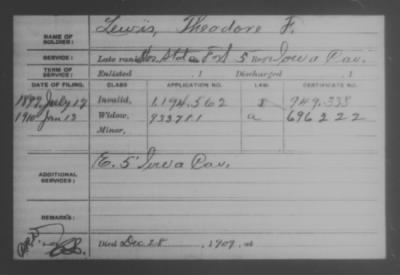 NAME OF SOLDIER: Lewis, Theodore F.
SERVICE: Late rank, F & S 5 Iowa Cav.
TERM OF SERVICE: Enlisted , 1 Discharged , 1
DATE OF FILING. CLASS APPLICATION NO. LAW. CERTIFICATE NO.
1897 July 17 Invalid, 1.194.562 949.338
1910 Jan 13 Widow, 933781 a 696222
Minor,
ADDITIONAL SERVICES: E. 5" Iowa Cav.
REMARKS:
Died Dec 28, 1909, at